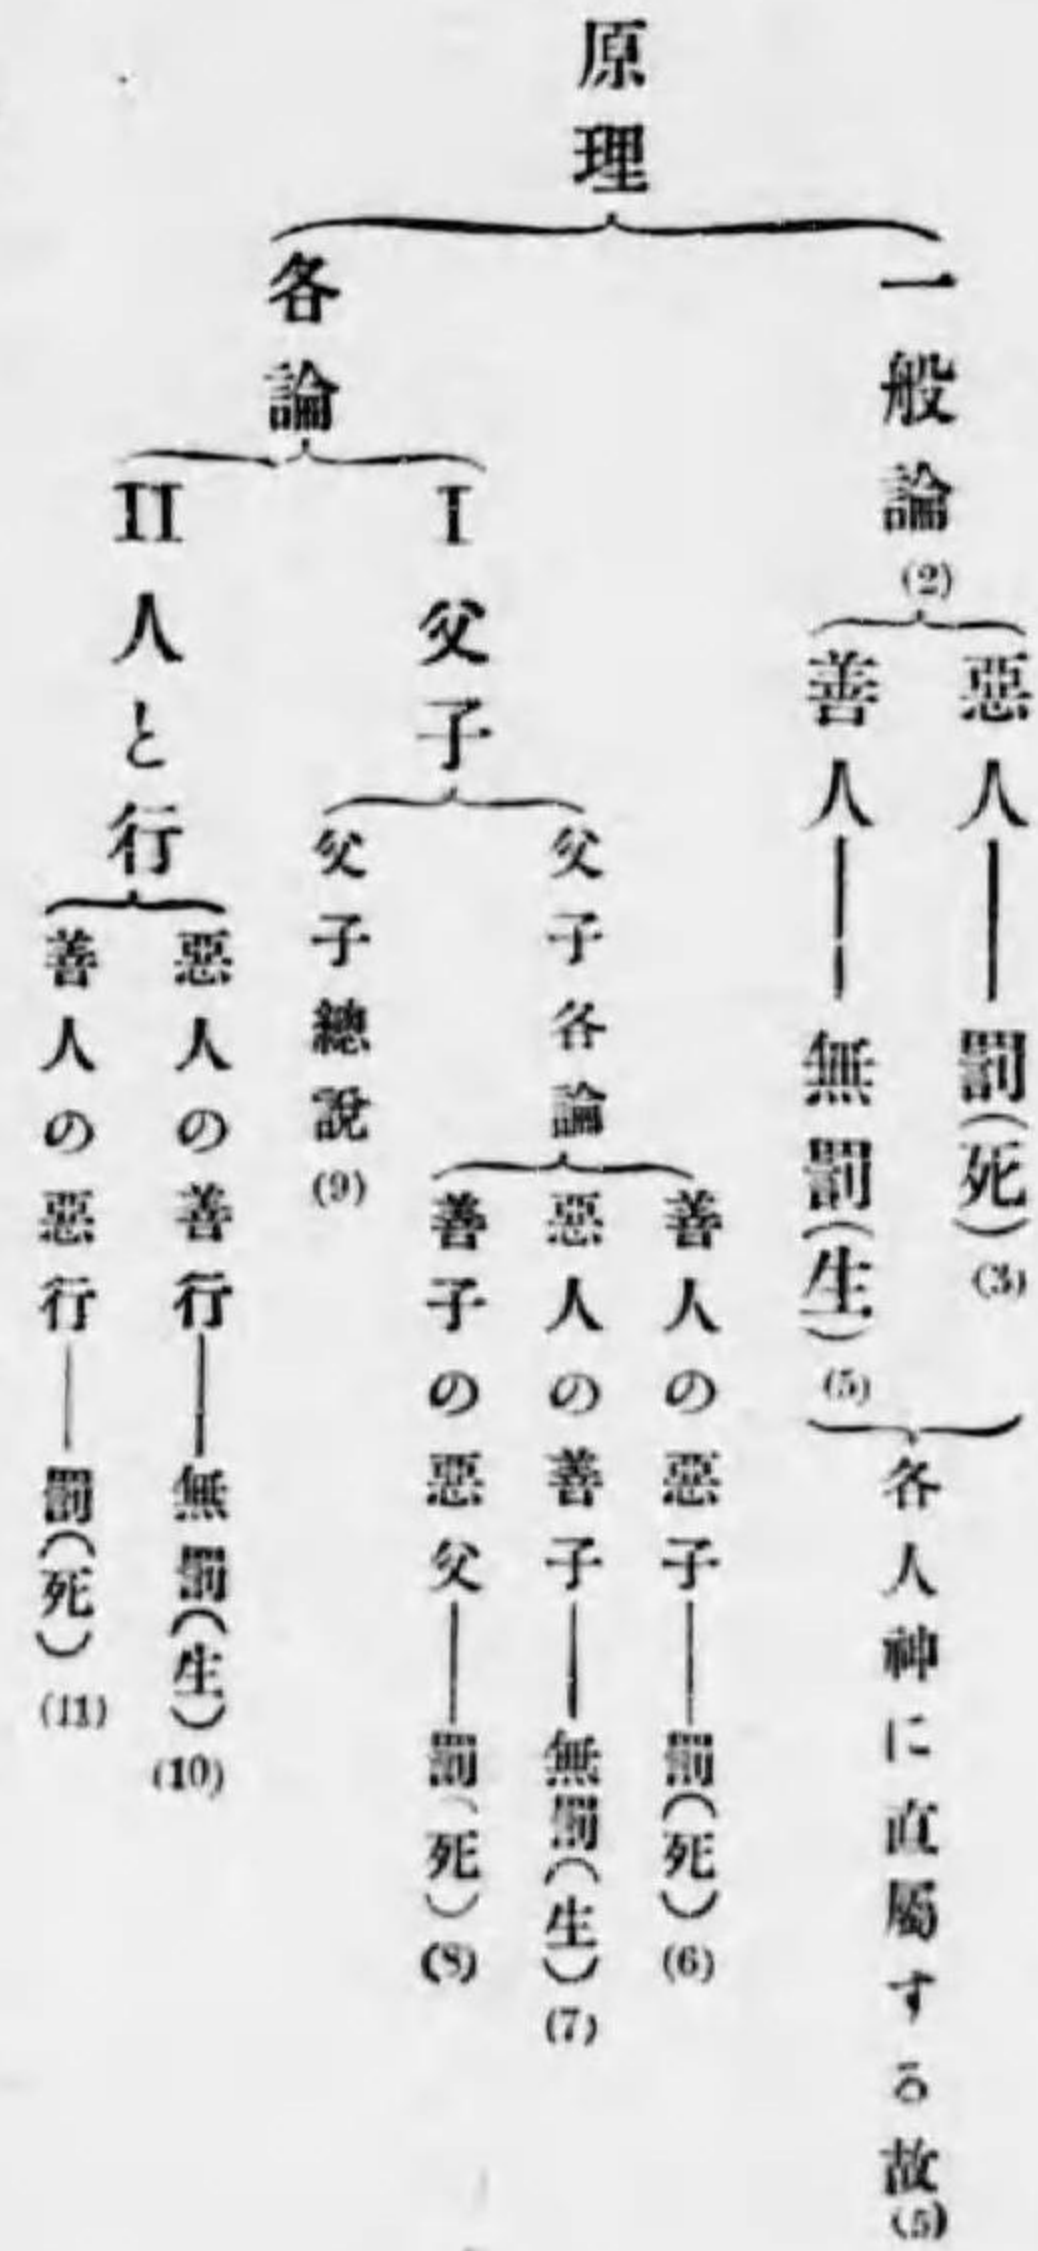 原理
一般論(2)
惡人――罰(死)(3)
善人――無罰(生)(5)
各人神に直屬する故(5)
各論
I 父子
父子各論
善人の惡子――罰(死)(6)
惡人の善子――無罰(生)(7)
善子の惡父――罰(死)(8)
父子總說(9)
II 人と行
惡人の善行――無罰(生)(10)
善人の惡行――罰(死)(11)